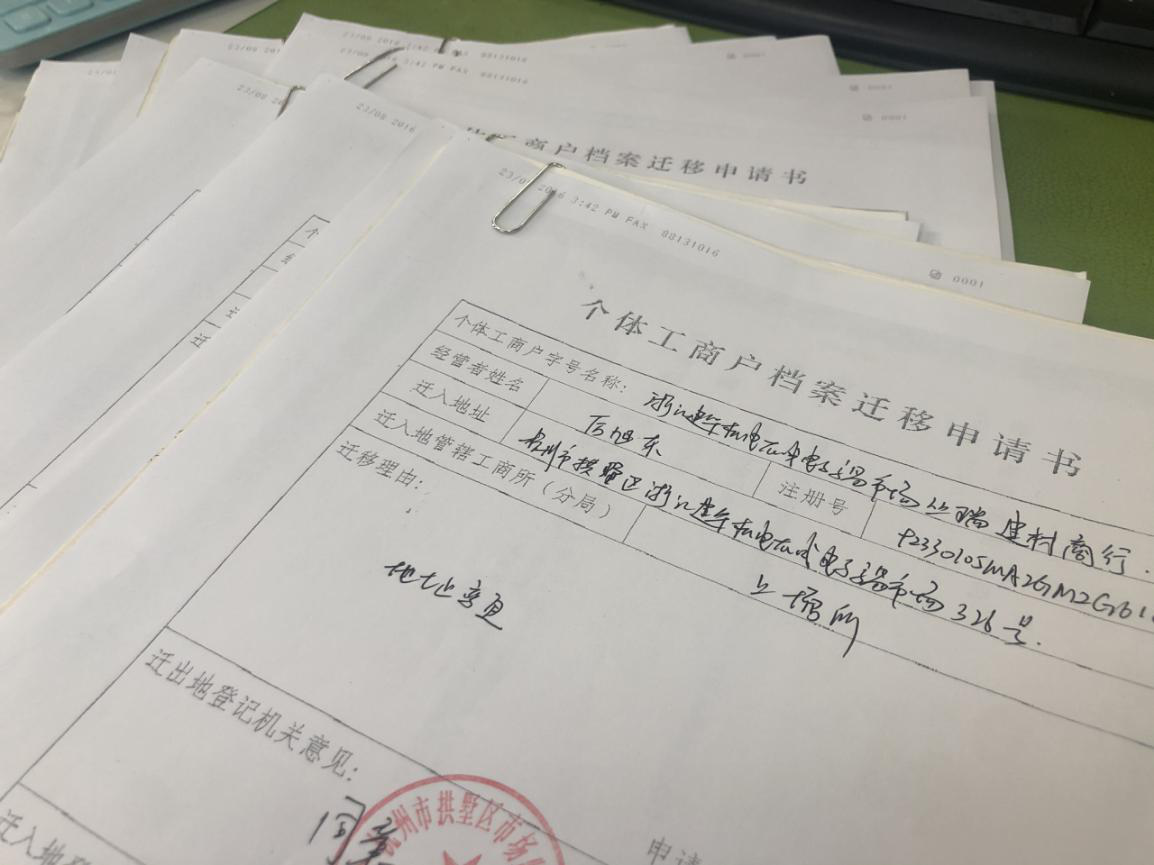 23/08 2016
23/08 2016 3:42 PM FAX 88131016 0001
个体工商户档案迁移申请书
个体工商户字号名称: 浙江建华机电五金电子市场 瑞建材商行.
经营者姓名 东 注册号 92330105MA2GM2G
迁入地址 杭州市拱墅区浙江建华机电五金电子市场326号.
迁入地管辖工商所（分局） 上塘所
迁移理由:
地址变更
迁出地登记机关意见:
同意
州市拱墅区市场
申请
迁入地
商户档案迁移申请书
3:42 PM FAX 88131016
0001
0001